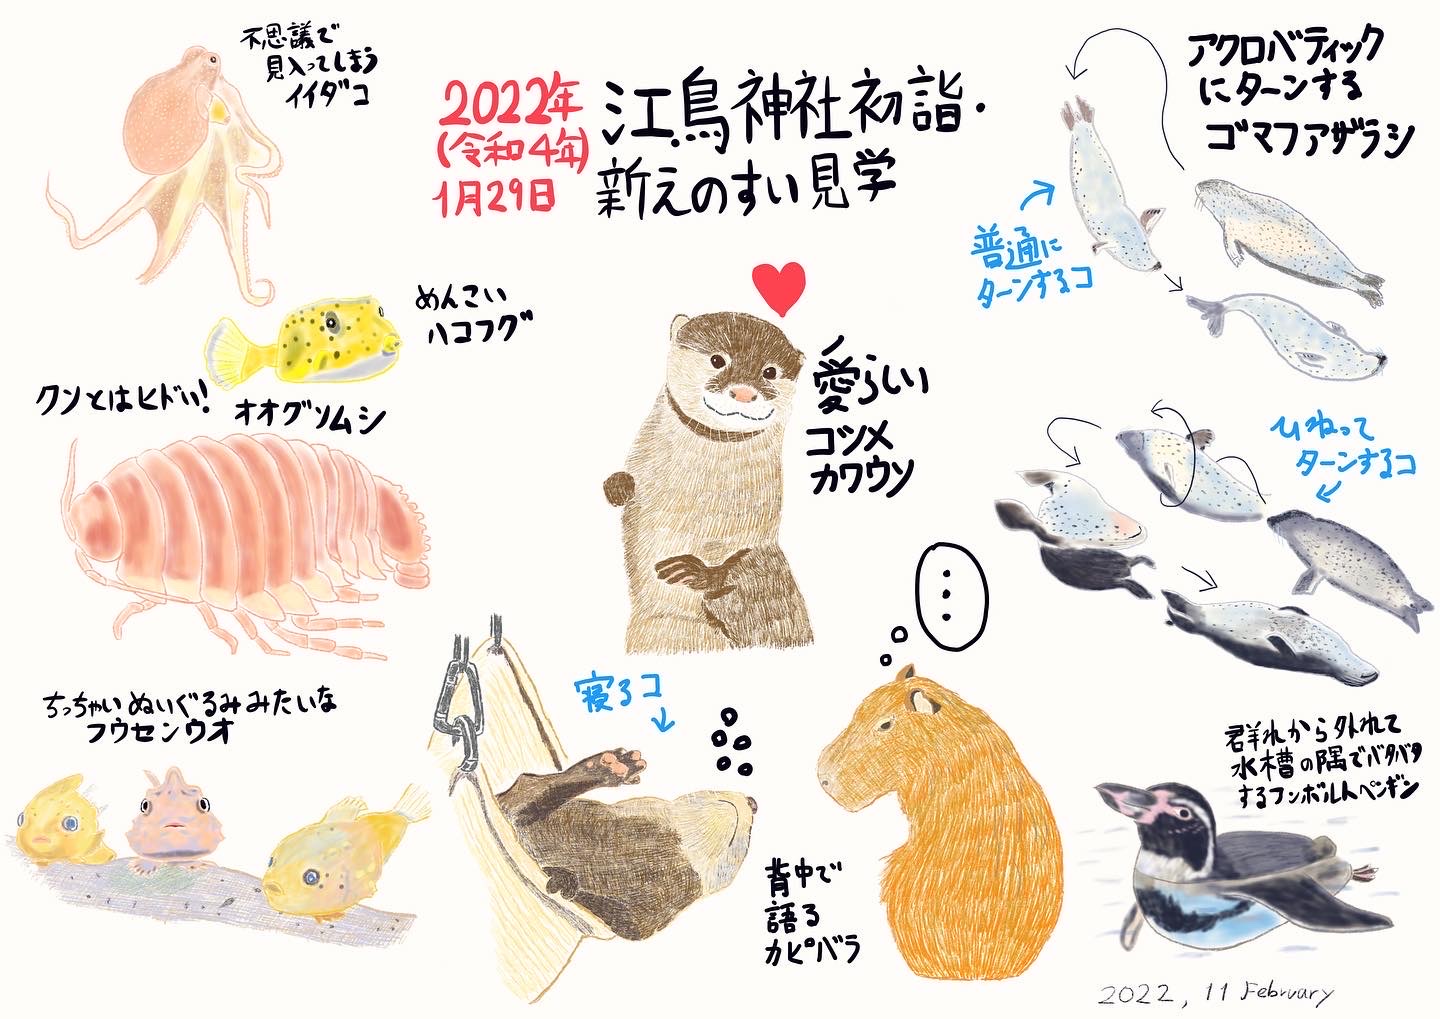 不思議で
見入ってしまう
イイダコ
2022年
(令和4年)
1月29日
江島神社初詣・
新えのすい見学
アクロバティック
にターンする
ゴマフアザラシ
普通に
ターンするコ
めんこい
ハコフグ
クソとはヒドい!
オオグソムシ
愛らしい
コツメ
カワウソ
ひねって
ターンするコ
ちっちゃいぬいぐるみみたいな
フウセンウオ
寝るコ
背中で
語る
カピバラ
群れから外れて
水槽の隅でバタバタ
するフンボルトペンギン
2022, 11 February